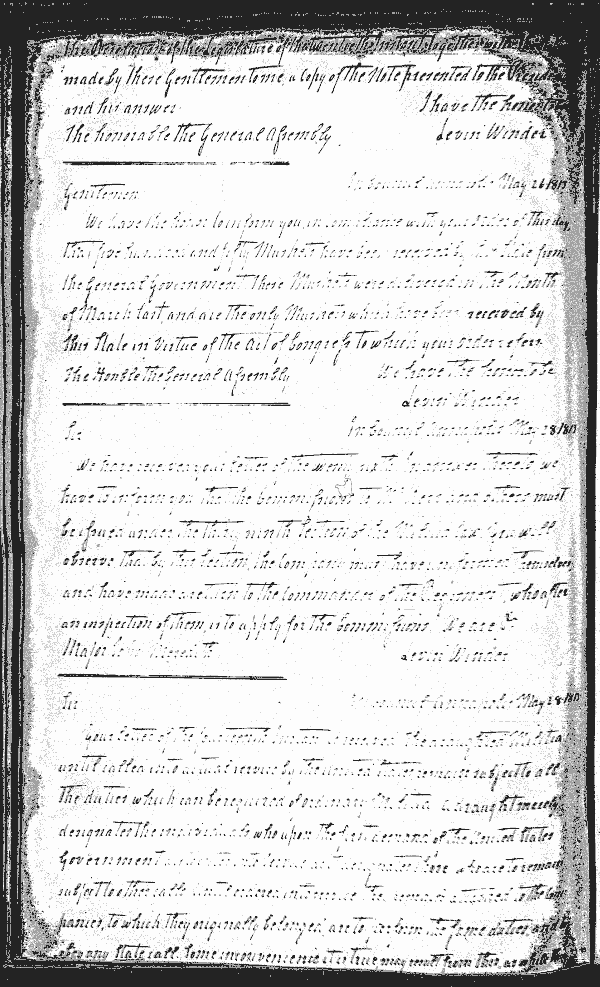 the Resolutions of the Legislature of the twenty fifth Instant, together with
made by these Gentlemen to me, a Copy of the Note presented to the
and his answer. I have the honor
The honorable the General Assembly. Levin Winder
In Council Annapolis May 26 1813
Gentlemen
We have the honor to inform you, in compliance with your order of this day,
that five hundred and fifty Muskets have been received by this State from
the General Government. These Muskets were delivered in the Month
of March last, and are the only Muskets which have been received by
this State in Virtue of the Act of Congress to which your order refers.
The Honble the General Assembly We have the honor to be
Levin Winder
In Council Annapolis May 28 1813
Sir
We have received your letter of the In answer thereto, we
have to inform you that the Commissions to Officers must
be issued under the thirty ninth Section of the Militia law. You will
observe, that by this Section, the Company must have uniformed themselves,
and have made return to the Commander of the Regiment, who after
an inspection of them, is to apply for the Commissions. We are &c.
Major Levin Winder
In Council Annapolis May 28 1813
Sir
Your letter of the fourteenth Instant is received. The draughted Militia,
until called into actual service by the United States remain subject to all
the duties which can be required of ordinary Militia. A draught merely
designates the individuals who upon the first demand of the United States
Government
subject to other calls until ordered into service. The attached to the Com-
panies, to which they originally belonged, are to perform the same duties, and
obey any State call. Some inconvenience it is true may result from this,